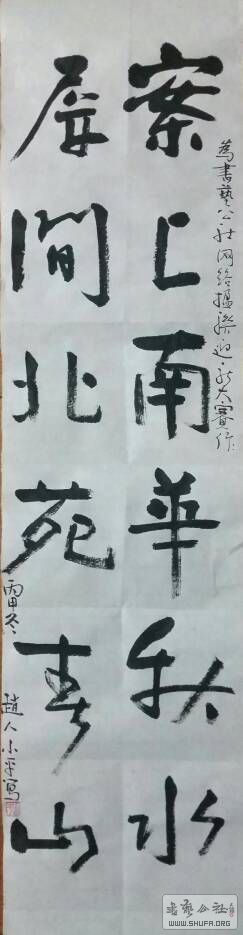 案上南華秋水
屏間北苑春山
為書藝公社网络擂臺迎新大賽作
丙申冬
趙人小平写
书艺公社
WWW.SHUFA.ORG